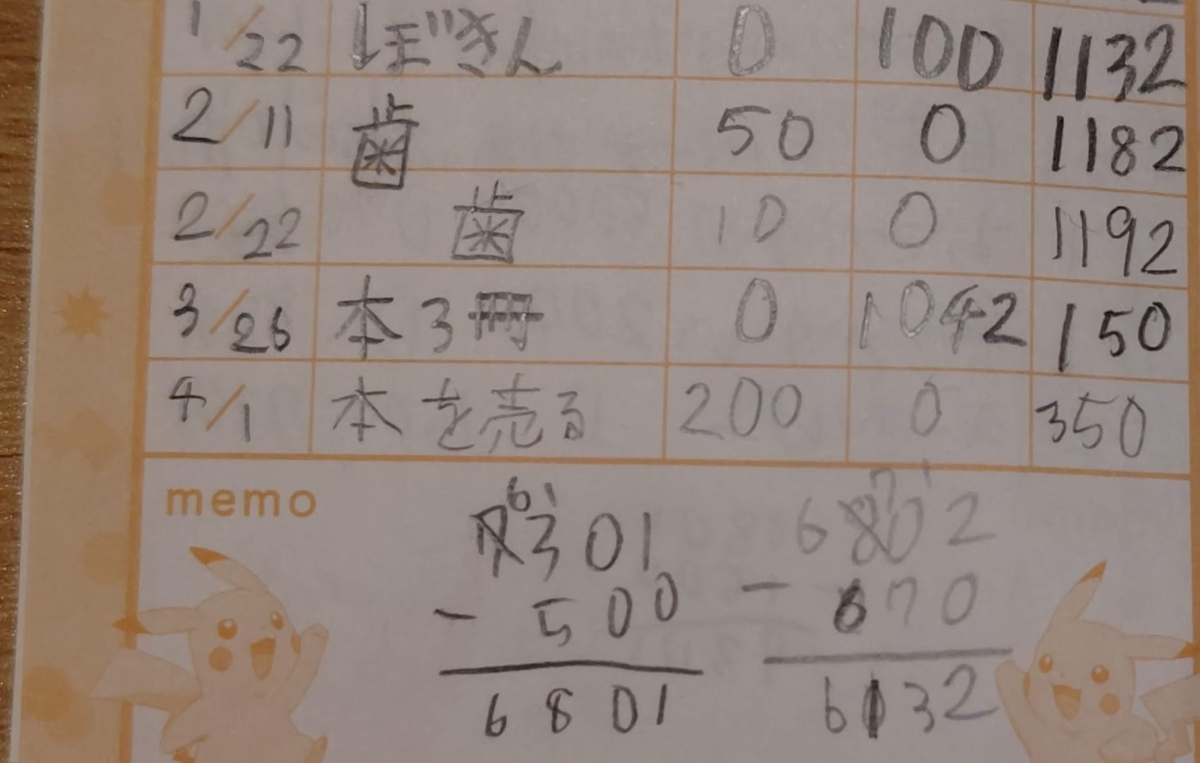 1/22 ぼきん 0 100 1132
2/11 歯 50 0 1182
2/22 歯 10 0 1192
3/26 本3冊 0 1042 150
4/1 本を売る 200 0 350
memo
6 1
7301
- 500
6801
7 1
6802
- 670
6132